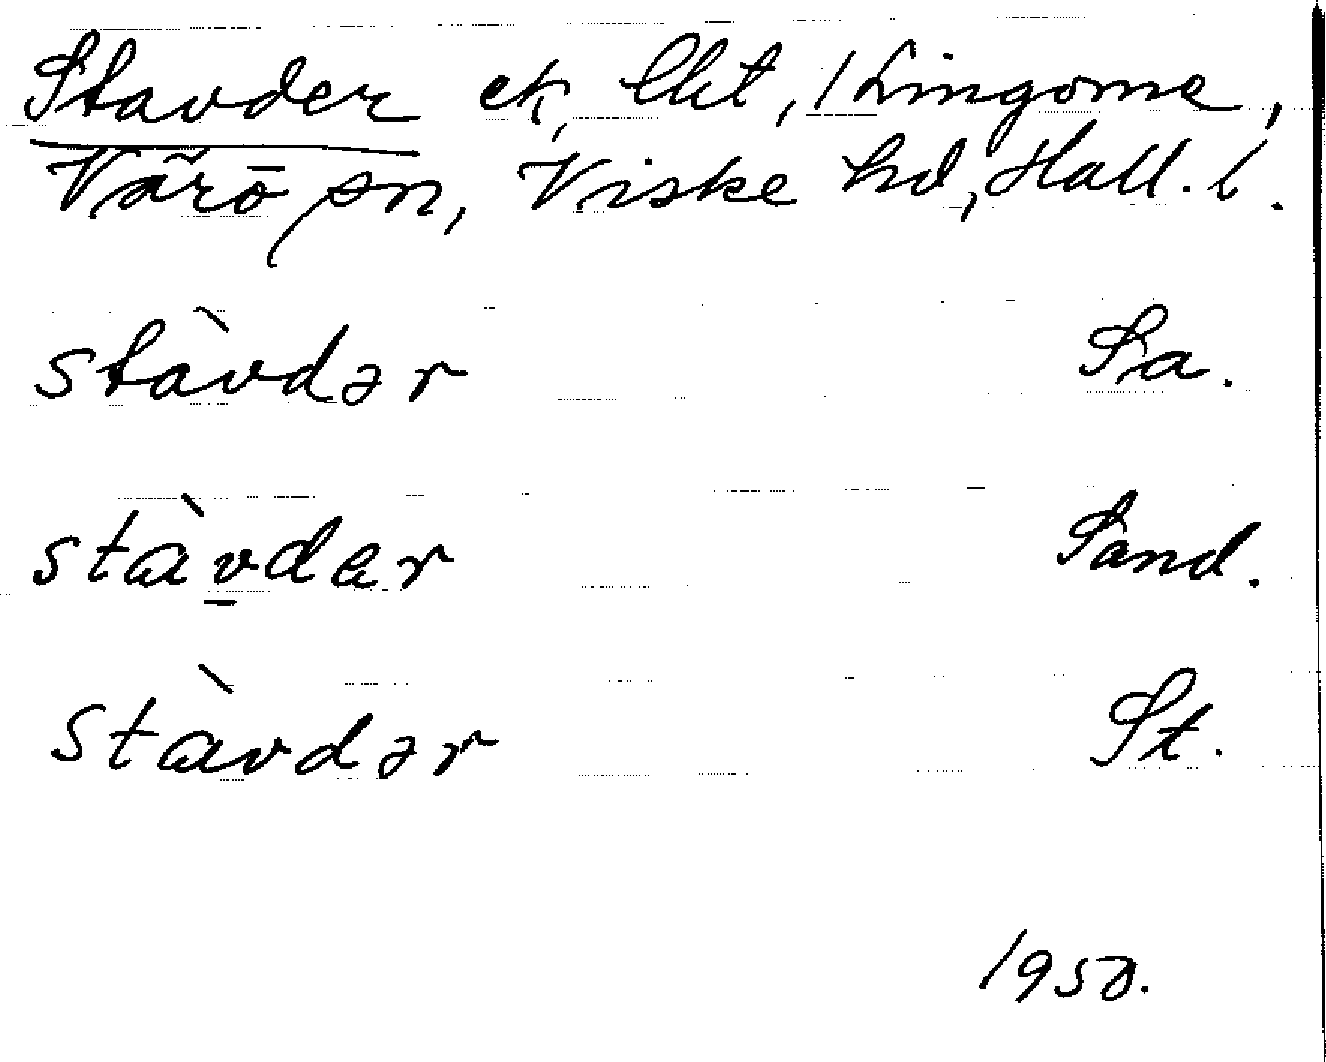 Stavder ek, Ukt, 1 Lingome,
Värö sn, Viske hd, Hall. l.
stàvdər Sa.
stàvdar Sand.
stàvdər St.
1950.